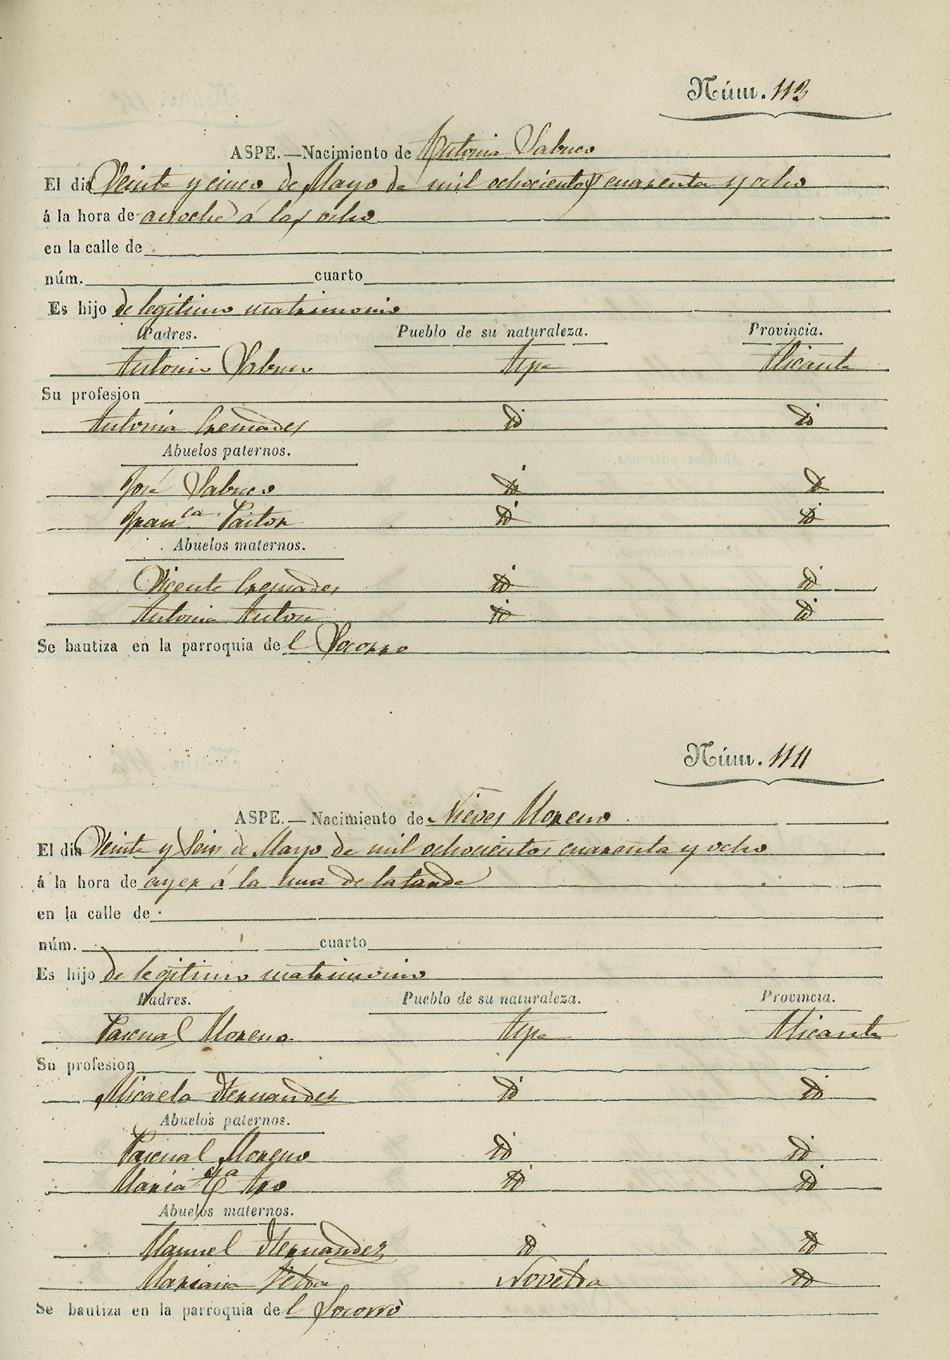 Núm. 113
ASPE.—Nacimiento de Antonio Sabuco
El dia Veinte y cinco de Mayo de mil ochocientos cuarenta y ocho
á la hora de anoche á las ocho
en la calle de
núm. cuarto
Es hijo de legitimo matrimonio
Padres. Pueblo de su naturaleza. Provincia.
Antonio Sabuco Aspe Alicante
Su profesion
Antonia Cremades id id
Abuelos paternos.
José Sabuco id id
Fran.ca Pastor id id
Abuelos maternos.
Vicente Cremades id id
Antonia Anton id id
Se bautiza en la parroquia del Socorro
Núm. 114
ASPE.—Nacimiento de Nieves Moreno
El dia Veinte y Seis de Mayo de mil ochocientos cuarenta y ocho
á la hora de ayer á la una de la tarde
en la calle de
núm. cuarto
Es hijo de legitimo matrimonio
Padres. Pueblo de su naturaleza. Provincia.
Pascual Moreno Aspe Alicante
Su profesion
Micaela Hernandez id id
Abuelos paternos.
Pascual Moreno id id
Maria id id
Abuelos maternos.
Manuel Hernandez id id
Mariana Novelda id
Se bautiza en la parroquia del Socorro